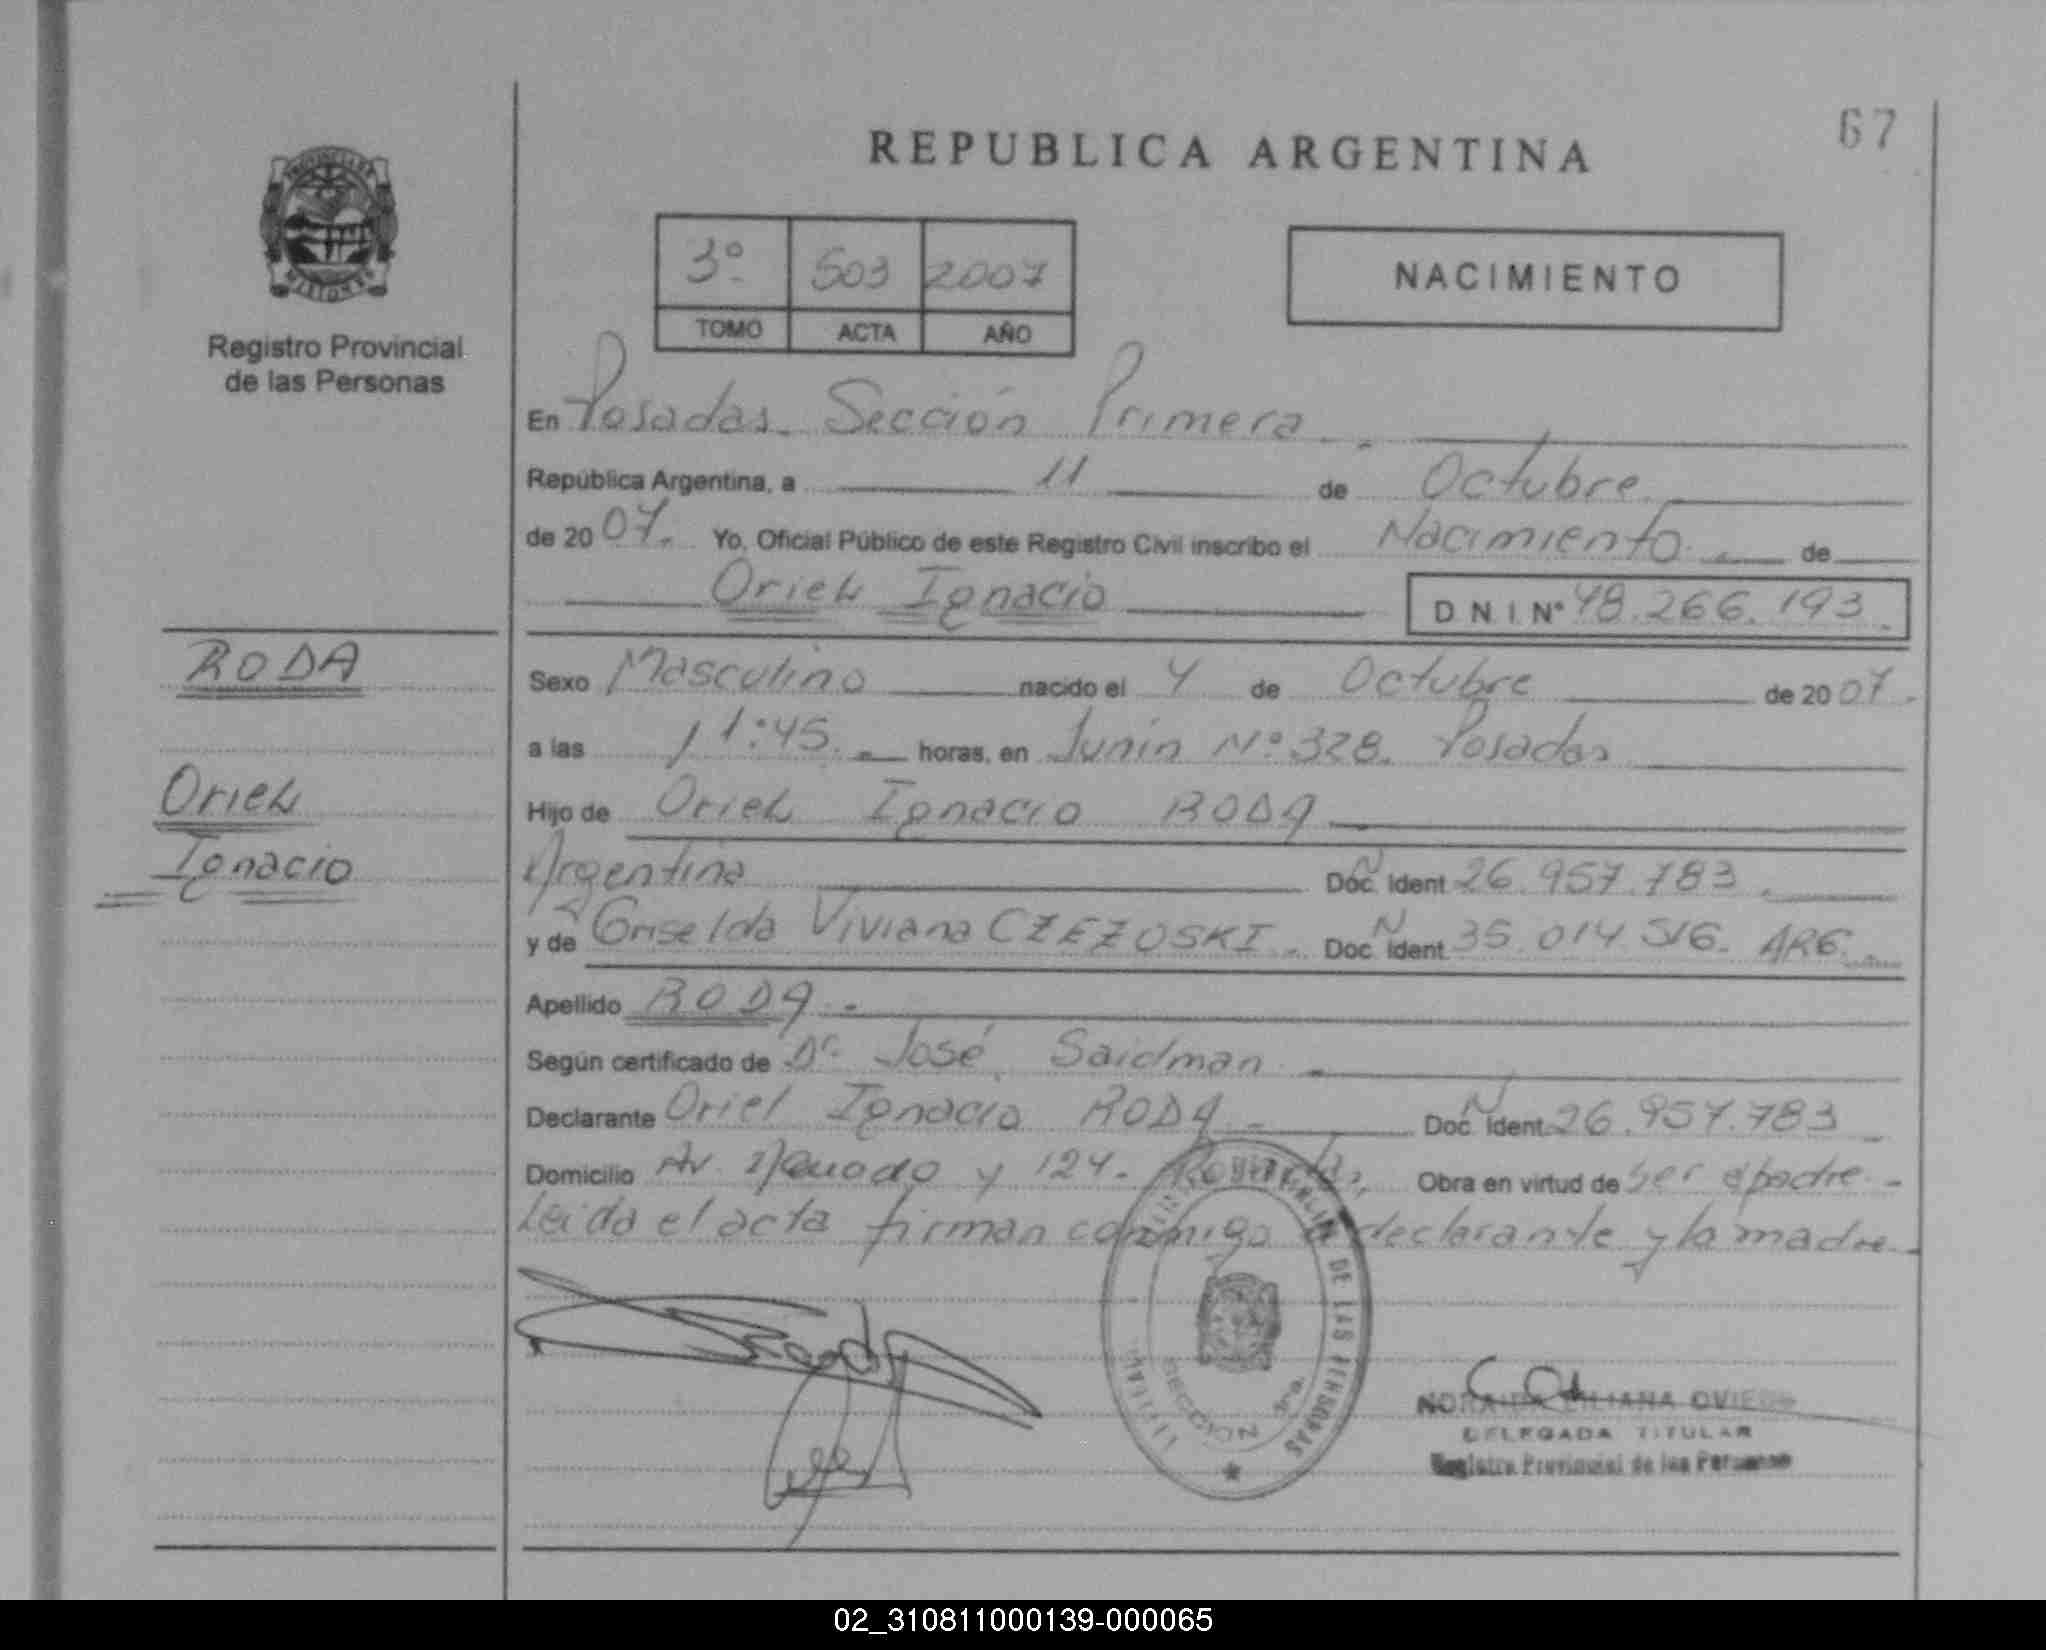 67
REPUBLICA ARGENTINA
3º 503 2007
TOMO ACTA AÑO
NACIMIENTO
Registro Provincial
de las Personas
En Posadas. Sección Primera.
República Argentina, a 11 de Octubre
de 2007. Yo, Oficial Público de este Registro Civil inscribo el Nacimiento de
Oriel Ignacio
D N I Nº 48.266.193.
RODA
Oriel
Ignacio
Sexo Masculino nacido el 4 de Octubre de 2007.
a las 11:45. horas, en Junín Nº 328. Posadas
Hijo de Oriel Ignacio RODA
Argentina Doc. Ident N 26.957.783.
y de Griselda Viviana CZEZOSKI. Doc. Ident. N 35.014.516. ARG.
Apellido RODA.
Según certificado de Dr. José Saidman
Declarante Oriel Ignacio RODA Doc. Ident. N 26.957.783
Domicilio Av. y 124. Obra en virtud de Ser el padre.
Leida el acta firman conmigo el declarante y la madre.
DE LAS PERSONAS
SECCION 1ra.
LILIANA OVIEDO
DELEGADA TITULAR
Registro Provincial de las Personas
02_310811000139-000065